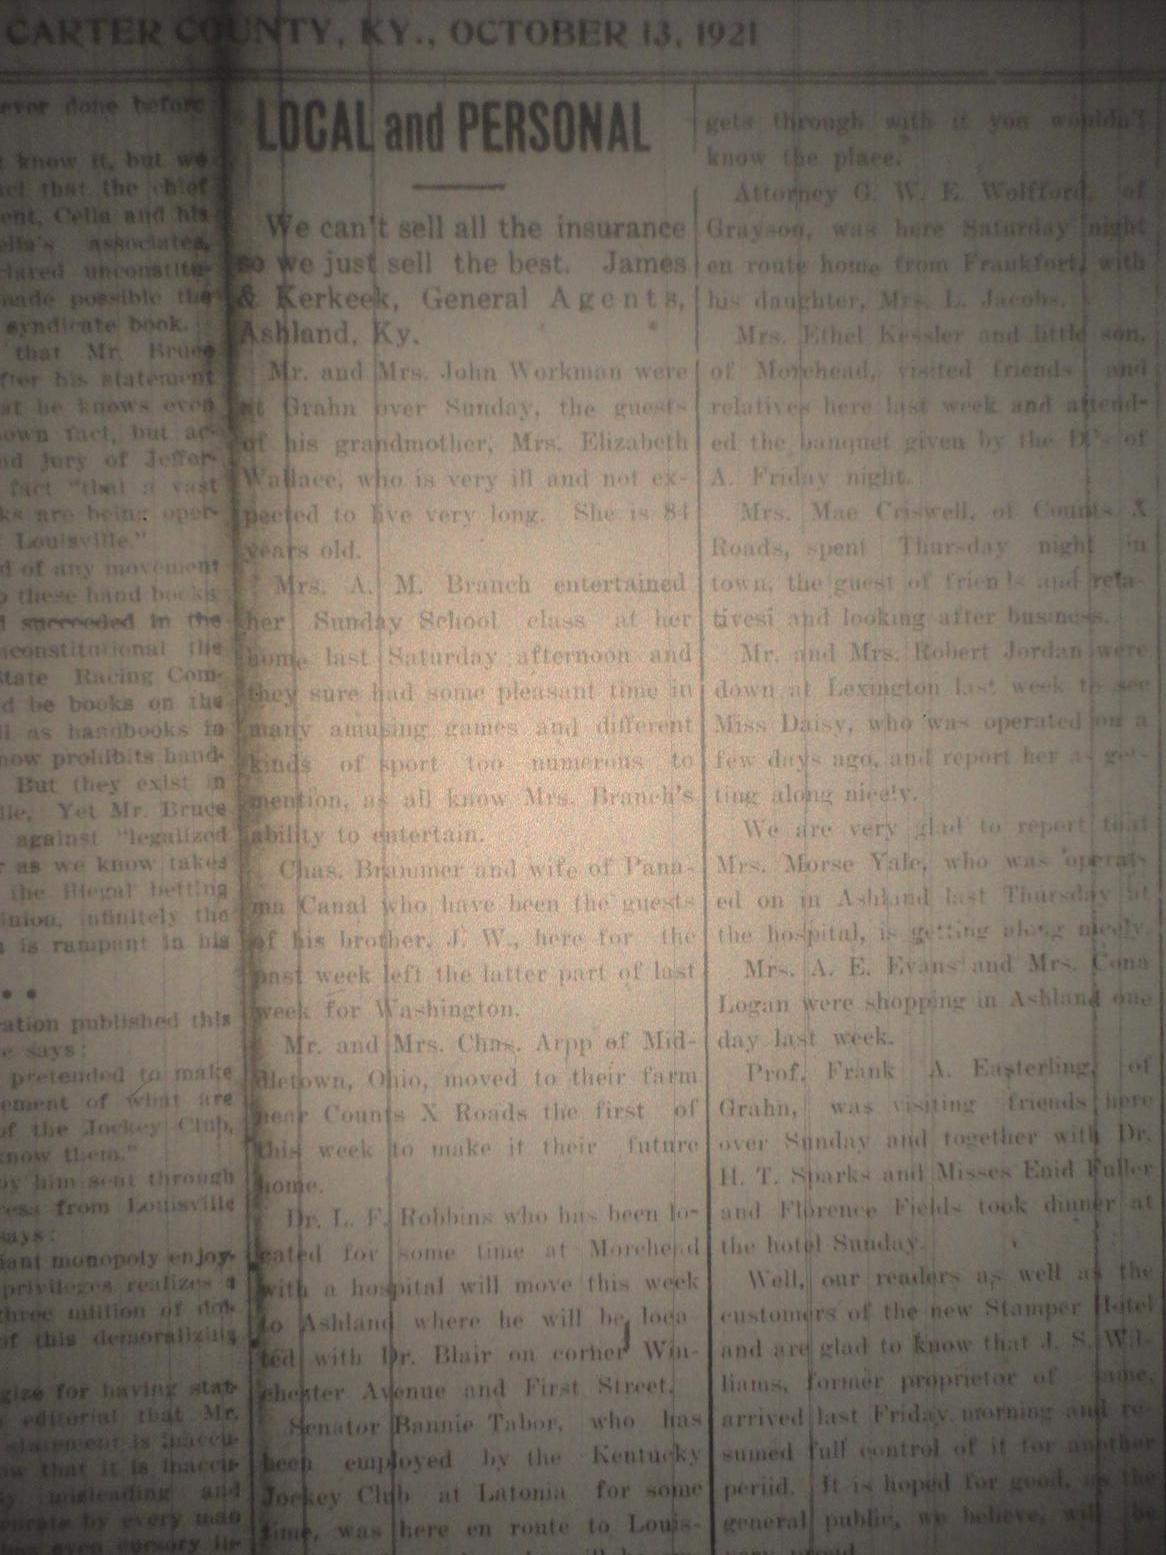 CARTER COUNTY, KY., OCTOBER 13, 1921
ever done before
know it, but we
that the chief
ent, Cella and his
ella's associates,
lared unconstitu-
made possible the
syndicate book.
that Mr. Bruce
fter his statement
at he knows even
own fact, but ac-
nd jury of Jeffer-
fact "that a vast
ks are being oper-
Louisville."
d of any movement
these hand books
succeeded in the
nconstitutional the
State Racing Com-
d be books on the
ll as handbooks in
now prohibits hand-
But they exist in
lle. Yet Mr. Bruce
against "legalized
r as we know takes
the illegal betting
inion, infinitely the
is rampant in his
ation published this
e says:
pretended to make
ement of what are
of the Jockey Club,
know them."
by him sent through
ress from Louisville
says:
iant monopoly enjoy-
privileges realizes a
three million of dol-
of this demoralizing
gize for having stat-
editorial that Mr.
statement is inaccu-
ow that it is inaccu-
misleading and
curate by every man
has even cursory
LOCAL and PERSONAL
We can't sell all the insurance
so we just sell the best. James
& Kerkeek, General Agents,
Ashland, Ky.
Mr. and Mrs. John Workman were
at Grahn over Sunday, the guests
of his grandmother, Mrs. Elizabeth
Wallace, who is very ill and not ex-
pected to live very long. She is 84
years old.
Mrs. A. M. Branch entertained
her Sunday School class at her
home last Saturday afternoon and
they sure had some pleasant time in
many amusing games and different
kinds of sport too numerous to
mention, as all know Mrs. Branch's
ability to entertain.
Chas. Brammer and wife of Pana-
ma Canal who have been the guests
of his brother, J. W., here for the
past week left the latter part of last
week for Washington.
Mr. and Mrs. Chas. Arpp of Mid-
dletown, Ohio, moved to their farm
near Counts X Roads the first of
this week to make it their future
home.
Dr. L. F. Robbins who has been lo-
cated for some time at Morehead
with a hospital will move this week
to Ashland where he will be loca
ted with Dr. Blair on corner Win-
chester Avenue and First Street.
Senator Bannie Tabor, who has
been employed by the Kentucky
Jockey Club at Latonia for some
time, was here en route to Louis-
gets through with it you wouldn't
know the place.
Attorney G. W. E. Wolfford, of
Grayson, was here Saturday night
en route home from Frankfort, with
his daughter, Mrs. L. Jacobs.
Mrs. Ethel Kessler and little son,
of Morehead, visited friends and
relatives here last week and attend-
ed the banquet given by the D's of
A. Friday night.
Mrs. Mae Criswell, of Counts X
Roads, spent Thursday night in
town, the guest of friends and rela-
tivesi and looking after business.
Mr. and Mrs. Robert Jordan were
down at Lexington last week to see
Miss Daisy, who was operated on a
few days ago, and report her as get-
ting along nicely.
We are very glad to report that
Mrs. Morse Yale, who was operat-
ed on in Ashland last Thursday at
the hospital, is getting along nicely.
Mrs. A. E. Evans and Mrs. Cona
Logan were shopping in Ashland one
day last week.
Prof. Frank A. Easterling, of
Grahn, was visiting friends here
over Sunday and together with Dr.
H. T. Sparks and Misses Enid Fuller
and Florence Fields took dinner at
the hotel Sunday.
Well, our readers as well as the
customers of the new Stamper Hotel
and are glad to know that J. S. Wil-
liams, former proprietor of same,
arrived last Friday morning and re-
sumed full control of it for another
periid. It is hoped for good, as the
general public, we believe, will be